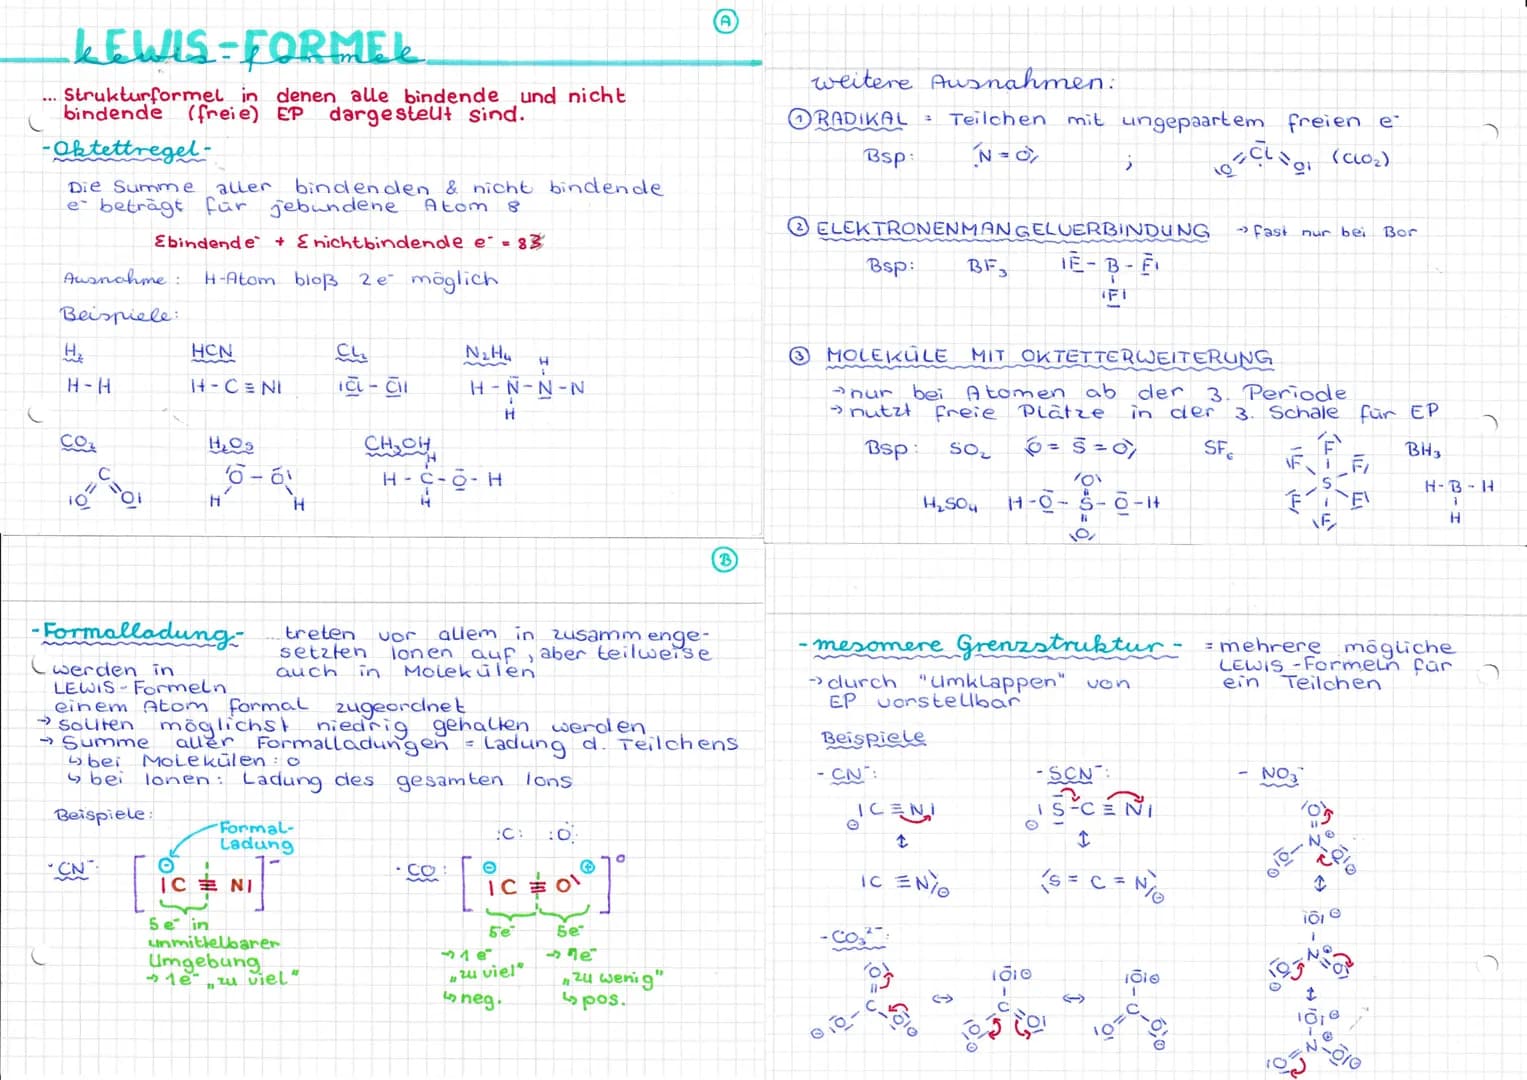 A
LEWIS-FORMEL
Lewis-formel
... Strukturformel in denen alle bindende und nicht
bindende (freie) EP dargestellt sind.
-Oktettregel-
Die Summe aller bindenden & nicht bindende
e⁻ beträgt für jebundene Atom 8
Σbindende⁻ + Σnichtbindende e⁻ = 8
Ausnahme: H-Atom bloß 2e⁻ möglich
Beispiele:
H₂ HCN Cl₂ N₂H₄
H-H H-C≡N| |C̅l-C̅l| H-N̅-N-N
H
H
CO₂ CH₃OH
H-C-O̅-H
H
H
weitere Ausnahmen:
① RADIKAL = Teilchen mit ungepaartem freien e⁻
Bsp: N=O ; Cl O O (ClO₂)
② ELEKTRONENMANGELVERBINDUNG → fast nur bei Bor
Bsp: BF₃ |F̅-B-F̅|
|F|
③ MOLEKÜLE MIT OKTETTERWEITERUNG
→ nur bei Atomen ab der 3. Periode
→ nutzt freie Plätze in der 3. Schale für EP
Bsp: SO₂ O=S̅=O SF₆ BH₃
H-B-H
H
H₂SO₄ H-O̅-S-O̅-H
O
O
F F F S F F F
B
-Formalladung- ... treten vor allem in zusammenge-
setzten Ionen auf, aber teilweise
auch in Molekülen
werden in
LEWIS-Formeln
einem Atom formal zugeordnet
→ sollten möglichst niedrig gehalten werden
→ Summe aller Formalladungen = Ladung d. Teilchens
↳ bei Molekülen: 0
↳ bei Ionen: Ladung des gesamten Ions
Beispiele:
Formal-
Ladung
:C: :O:
· CN⁻: [|C≡N|]⁻
· CO: [|C≡O|]⁰
⊖ ⊖ ⊕
5e⁻ in
unmittelbarer
Umgebung
→ 1e⁻ „zu viel"
5e⁻ 5e⁻
→ 1e⁻
„zu viel"
↳ neg.
→ 1e⁻
„zu wenig"
↳ pos.
-mesomere Grenzstruktur- = mehrere mögliche
LEWIS-Formeln für
ein Teilchen
→ durch "Umklappen" von
EP vorstellbar
Beispiele
- CN⁻: - SCN⁻: - NO₃⁻
|C≡N| |S̅-C≡N|
⊖ ⊖
↕ ↕
|C≡N⊖ S=C=N⊖
- CO₃²⁻:
O C O O ⊖ ⊖ ↔ |O̅|⊖ C O O ⊖ ↔ |O̅|⊖ C O O ⊖
O N⊕ O O ⊖
↕
|O̅|⊖
N⊕
O O ⊖
↕
|O̅|⊖
N⊕
O O ⊖